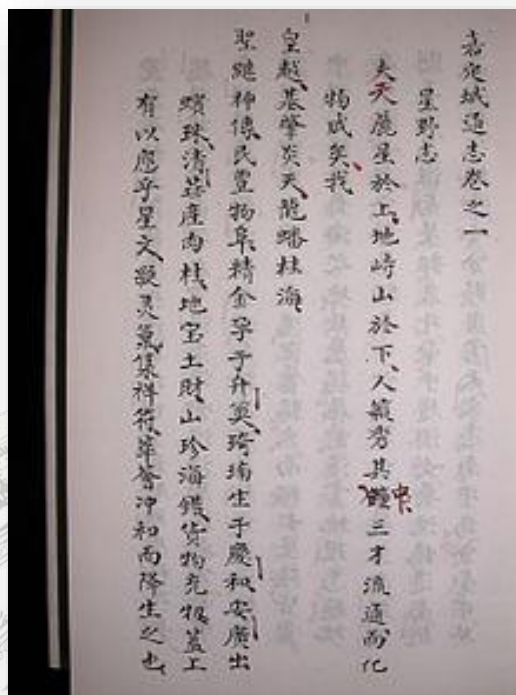 嘉定城通志卷之一
星野志
夫天麗星於上、地峙山於下、人藐其中三才流通而化
物成矣、我
皇越、基肇炎天、龍蟠桂海、
聖継神傳、民豊物阜、精金孕于升奠、琦生于慶和、安廣出
蠙珠、清葩産肉桂、地宝土財、山珍海錯、貨物充牣、蓋上
有以應乎星文、凝灵氣、集祥符、萃薈冲和而降生之也、